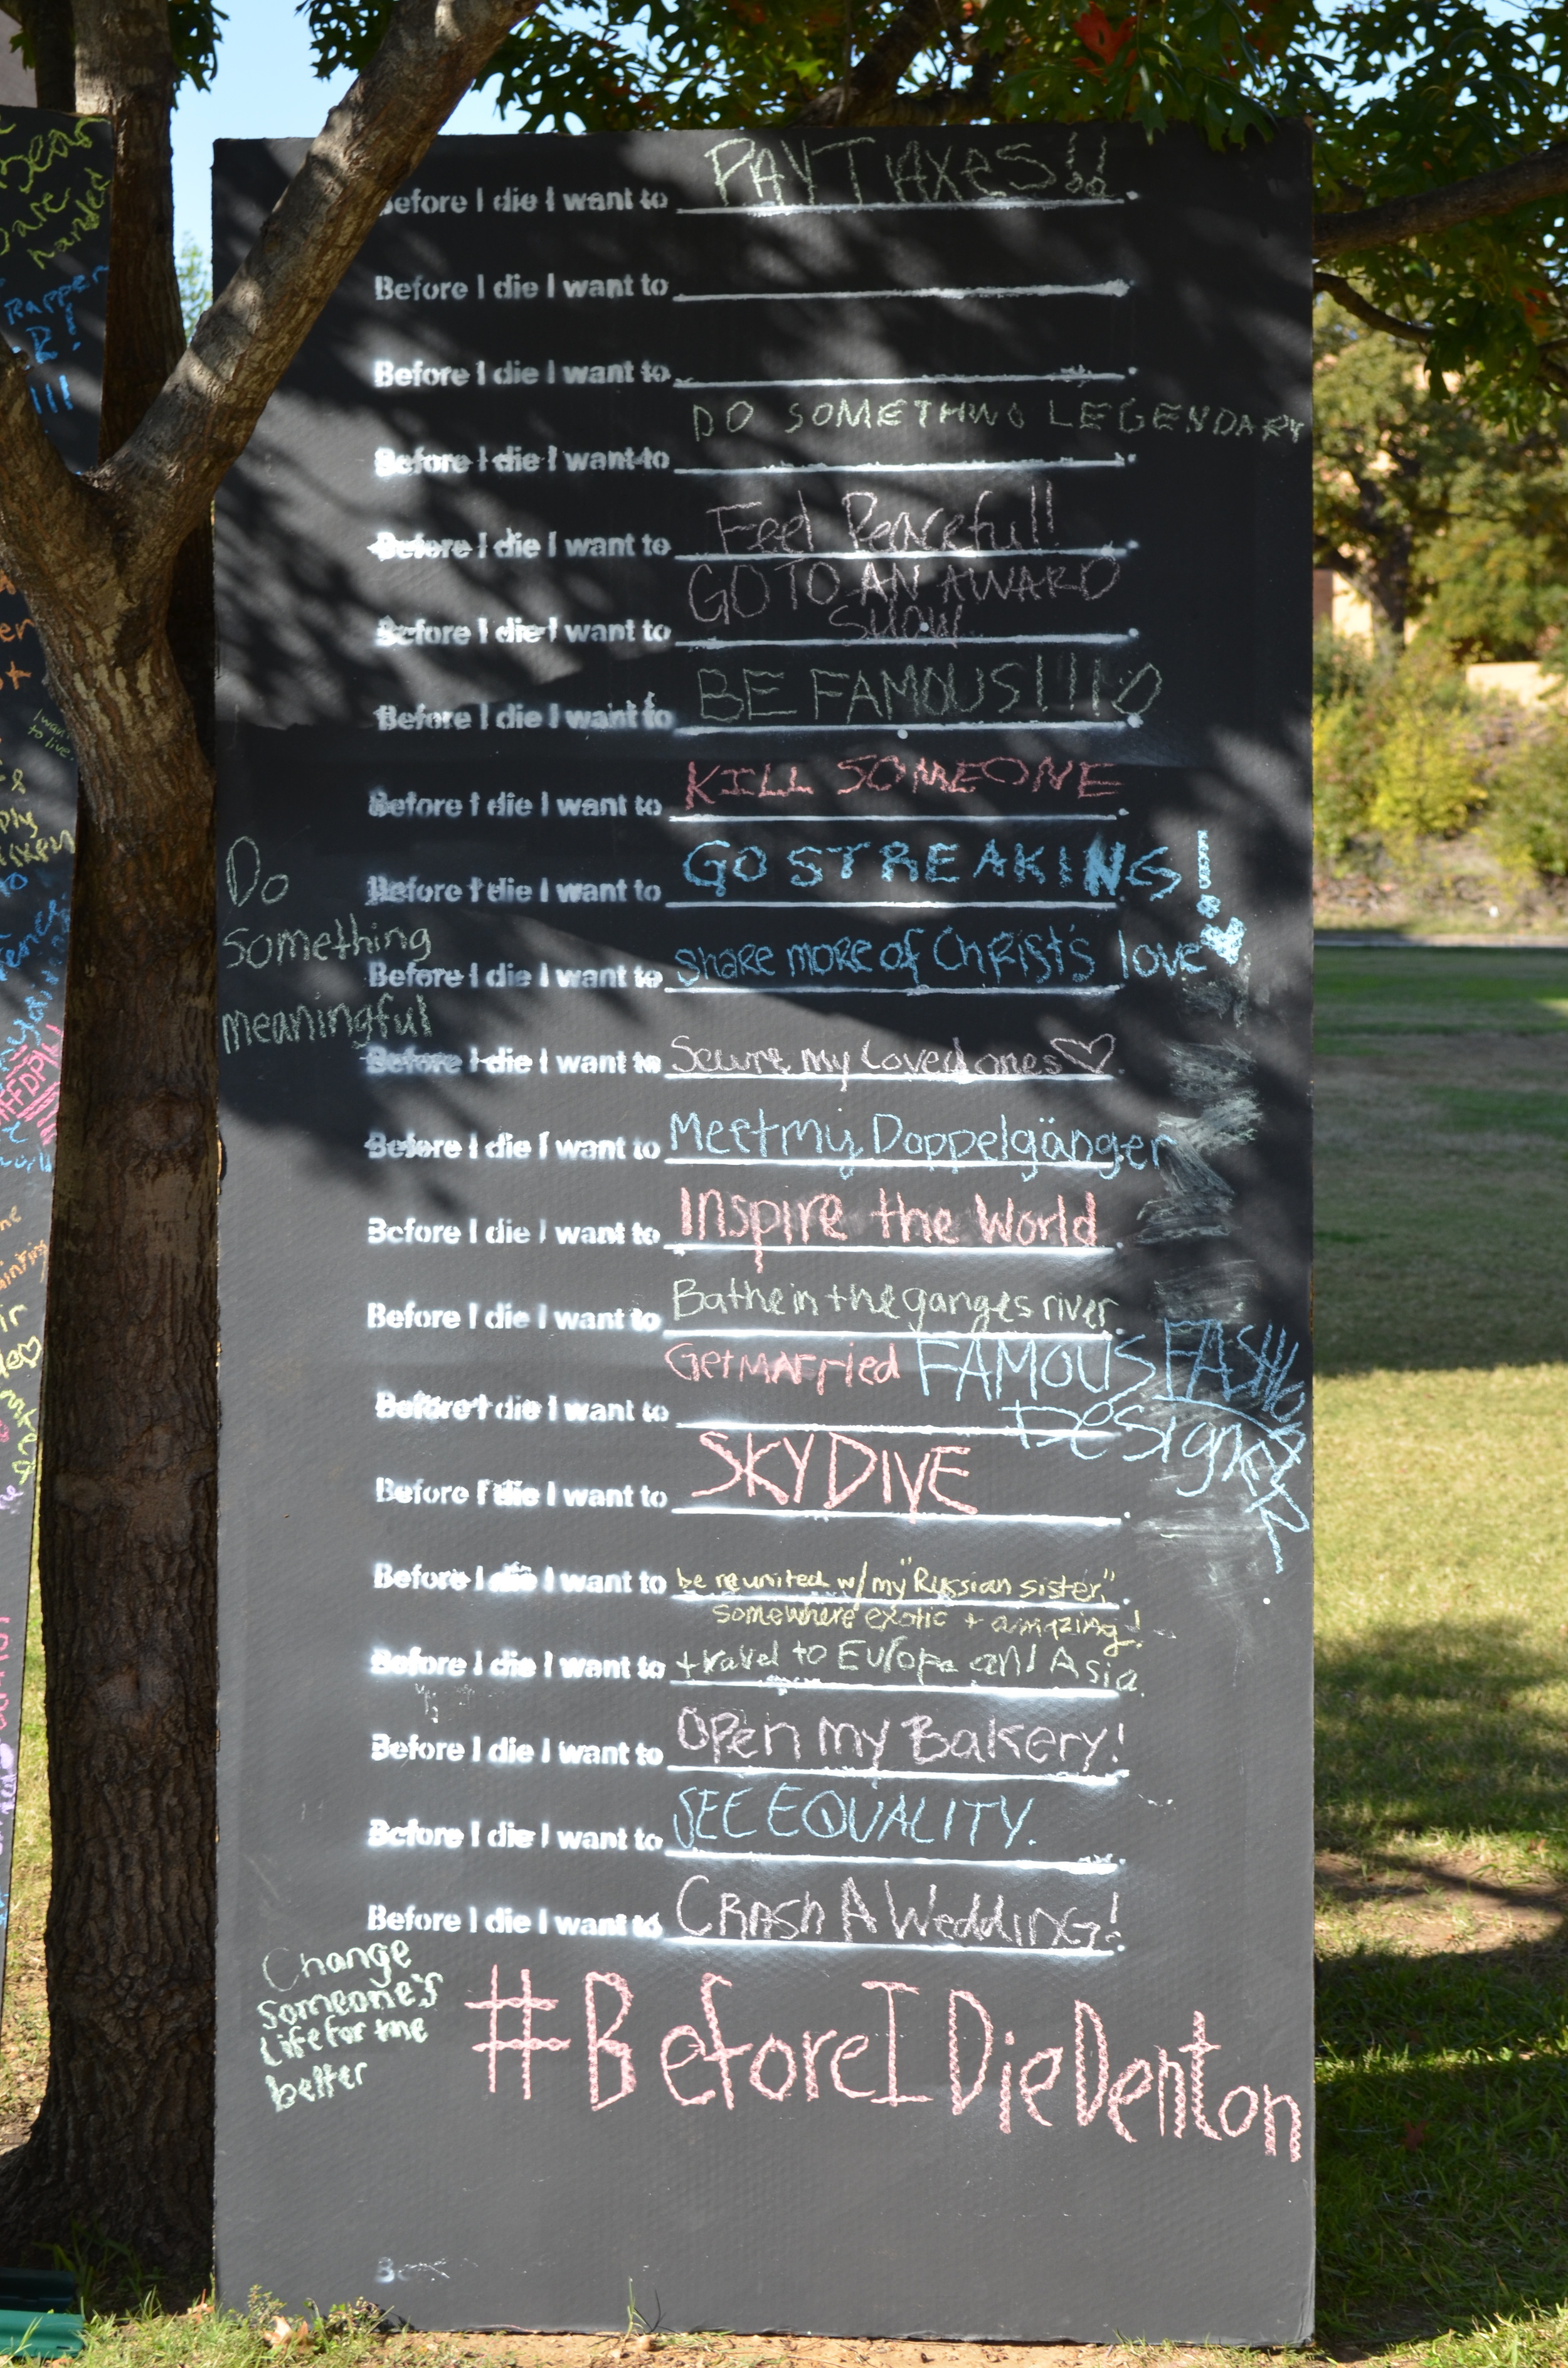 Before I die I want to PAY TAXES!!.
Before I die I want to
Before I die I want to
DO SOMETHING LEGENDARY
Before I die I want to
Before I die I want to Feel Peaceful!
GO TO AN AWARD
Before I die I want to SHOW.
Before I die I want to BE FAMOUS!!!
Before I die I want to KILL SOMEONE
Before I die I want to GO STREAKING!
Before I die I want to share more of Christ's love
Do
Something
meaningful
Before I die I want to Secure my Loved ones♡
Before I die I want to Meet my Doppelgänger
Before I die I want to Inspire the World
Before I die I want to Bathe in the ganges river
Get married FAMOUS FASHION
DESigneR
Before I die I want to
Before I die I want to SKYDIVE
Before I die I want to be reunited w/ my "Russian sister,"
somewhere exotic + amazing!
Before I die I want to travel to Europe and Asia
Before I die I want to Open my Bakery!
Before I die I want to SEE EQUALITY.
Before I die I want to CRASh A WeddiNG!
Change
Someone's
Life for me
better
#BeforeIDieDenton
Rapper